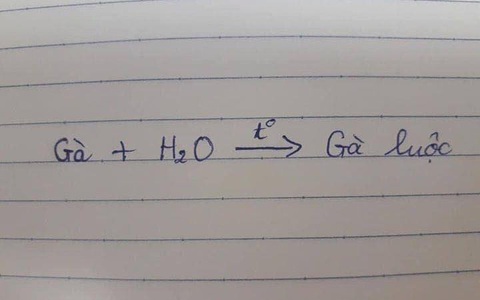 Gà + H₂O t° → Gà luộc